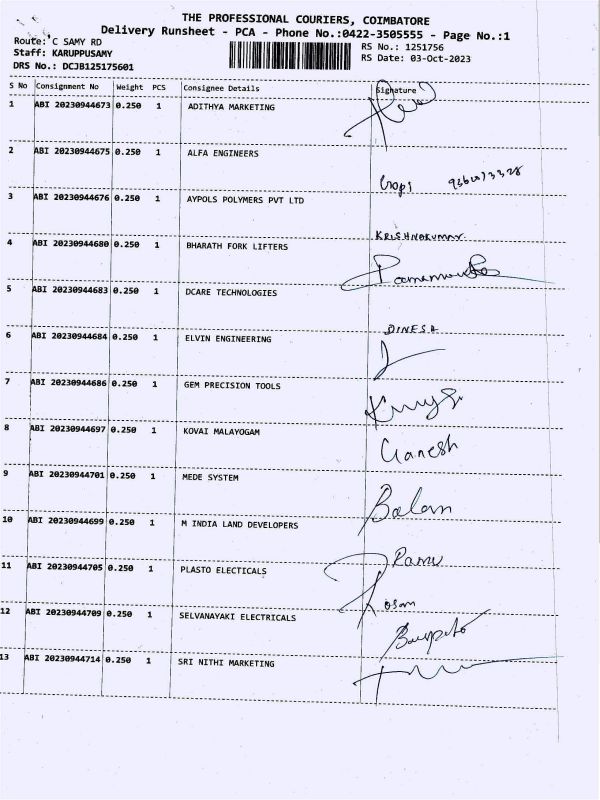 THE PROFESSIONAL COURIERS, COIMBATORE
Delivery Runsheet - PCA - Phone No.:0422-3505555 - Page No.:1
Route: C SAMY RD
Staff: KARUPPUSAMY
DRS No.: DCJB125175601
RS No.: 1251756
RS Date: 03-Oct-2023
S No Consignment No Weight PCS Consignee Details Signature
1 ABI 20230944673 0.250 1 ADITHYA MARKETING
2 ABI 20230944675 0.250 1 ALFA ENGINEERS
Gopi
3 ABI 20230944676 0.250 1 AYPOLS POLYMERS PVT LTD
KRISHNAKUMAR
4 ABI 20230944680 0.250 1 BHARATH FORK LIFTERS
5 ABI 20230944683 0.250 1 DCARE TECHNOLOGIES
DINESH
6 ABI 20230944684 0.250 1 ELVIN ENGINEERING
7 ABI 20230944686 0.250 1 GEM PRECISION TOOLS
8 ABI 20230944697 0.250 1 KOVAI MALAYOGAM
Ganesh
9 ABI 20230944701 0.250 1 MEDE SYSTEM
Balan
10 ABI 20230944699 0.250 1 M INDIA LAND DEVELOPERS
Ramu
11 ABI 20230944705 0.250 1 PLASTO ELECTICALS
12 ABI 20230944709 0.250 1 SELVANAYAKI ELECTRICALS
13 ABI 20230944714 0.250 1 SRI NITHI MARKETING